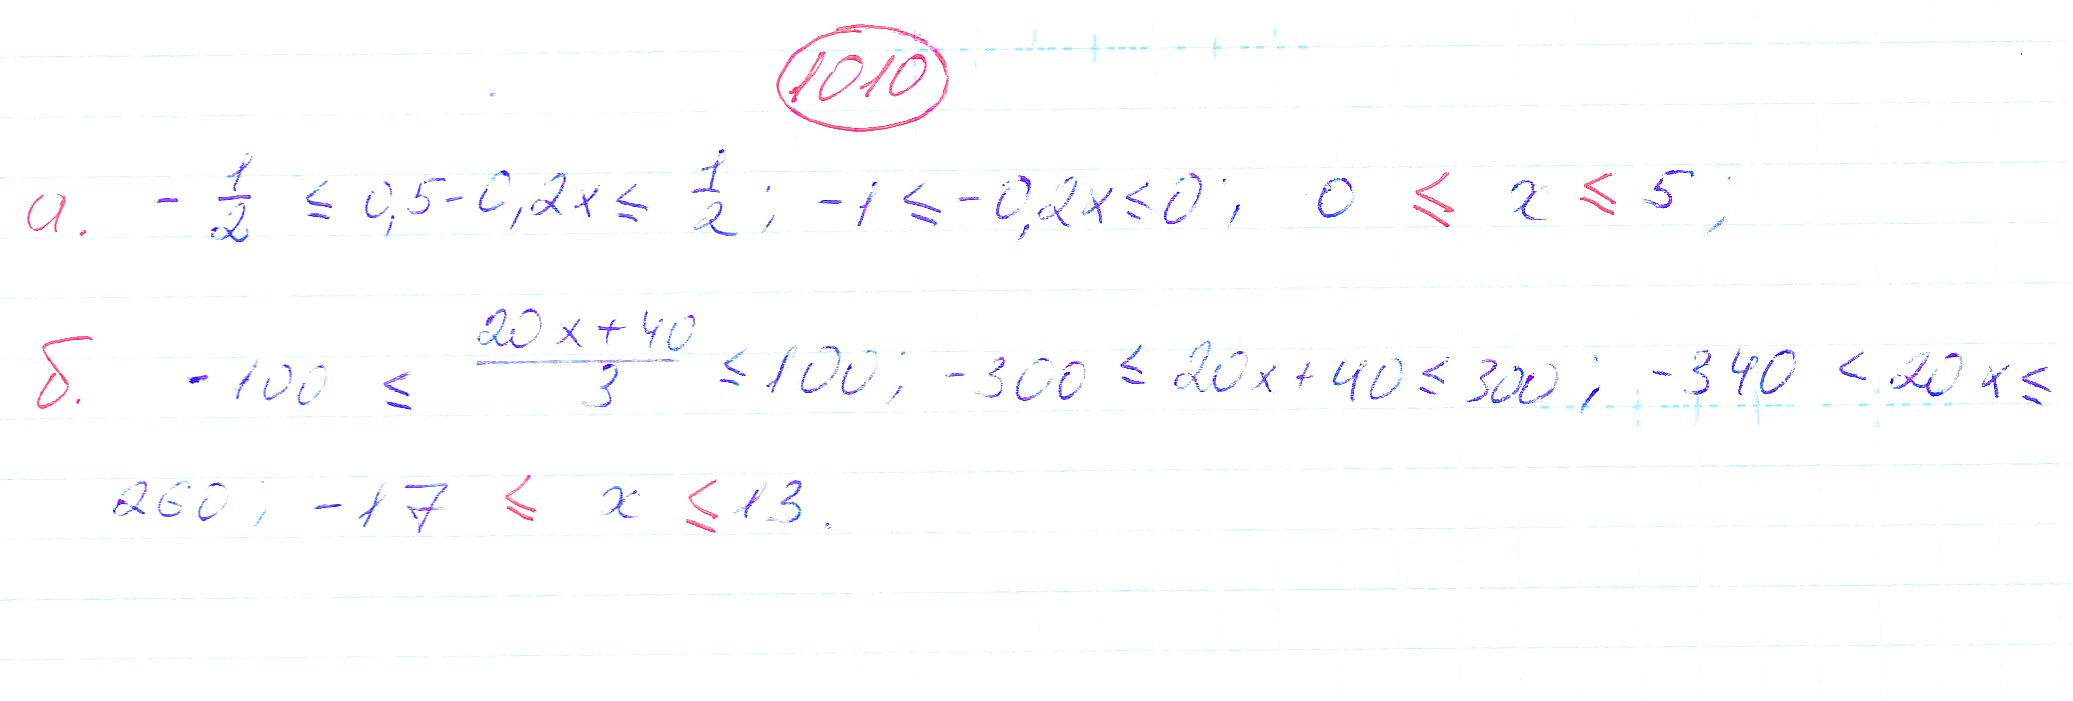 1010
а. -1/2 ≤ 0,5-0,2x ≤ 1/2; -1 ≤ -0,2x ≤ 0; 0 ≤ x ≤ 5;
б. -100 ≤ (20x+40)/3 ≤ 100; -300 ≤ 20x+40 ≤ 300; -340 < 20x ≤
260; -17 ≤ x ≤ 13.